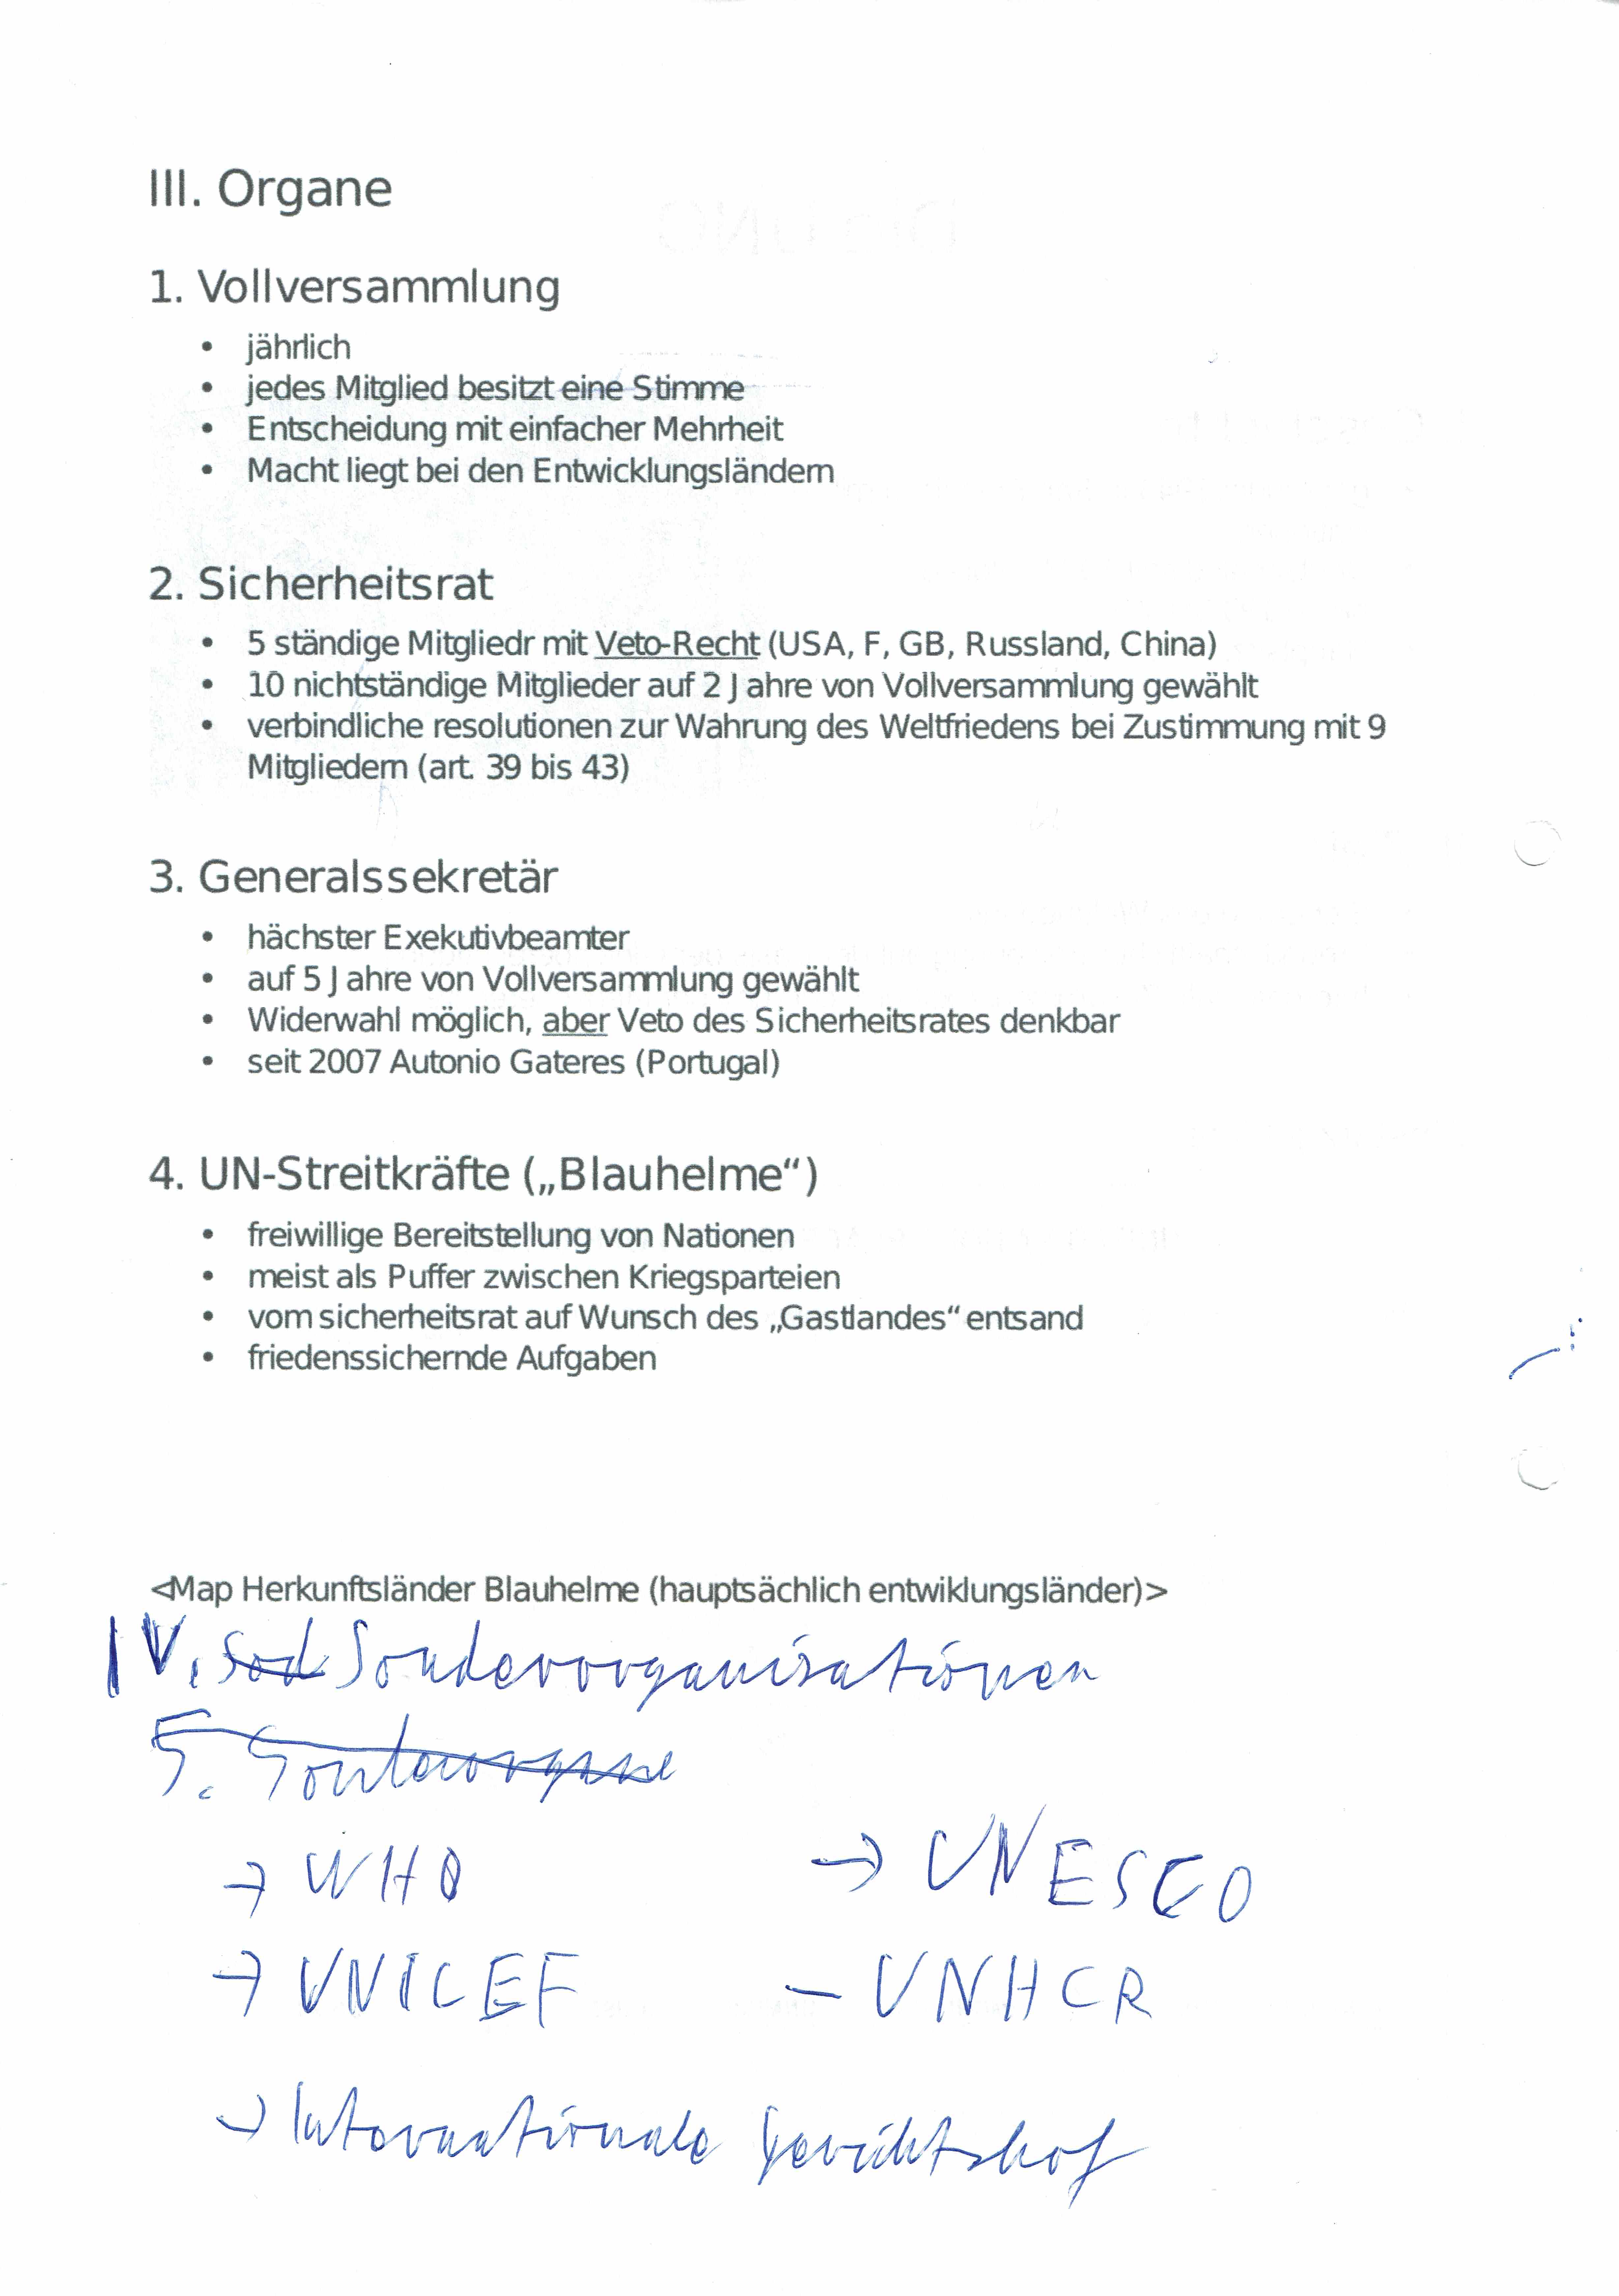 III. Organe
1. Vollversammlung
• jährlich
• jedes Mitglied besitzt eine Stimme
• Entscheidung mit einfacher Mehrheit
• Macht liegt bei den Entwicklungsländern
2. Sicherheitsrat
• 5 ständige Mitgliedr mit Veto-Recht (USA, F, GB, Russland, China)
• 10 nichtständige Mitglieder auf 2 Jahre von Vollversammlung gewählt
• verbindliche resolutionen zur Wahrung des Weltfriedens bei Zustimmung mit 9
Mitgliedern (art. 39 bis 43)
3. Generalssekretär
• hächster Exekutivbeamter
• auf 5 Jahre von Vollversammlung gewählt
• Widerwahl möglich, aber Veto des Sicherheitsrates denkbar
• seit 2007 Autonio Gateres (Portugal)
4. UN-Streitkräfte („Blauhelme“)
• freiwillige Bereitstellung von Nationen
• meist als Puffer zwischen Kriegsparteien
• vom sicherheitsrat auf Wunsch des „Gastlandes“ entsand
• friedenssichernde Aufgaben
<Map Herkunftsländer Blauhelme (hauptsächlich entwiklungsländer)>
IV. Sod Sonderorganisationen
5. Sonderorgane
→ WHO → UNESCO
→ UNICEF – UNHCR
→ Internationale Gerichtshof